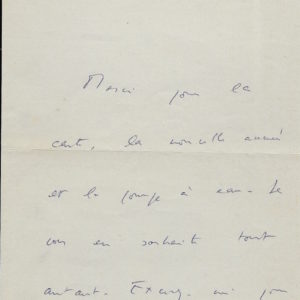 Merci pour la
carte, la nouvelle année
et la pompe à eau. Je
vous en souhaite tout
autant. Excusez-moi pour